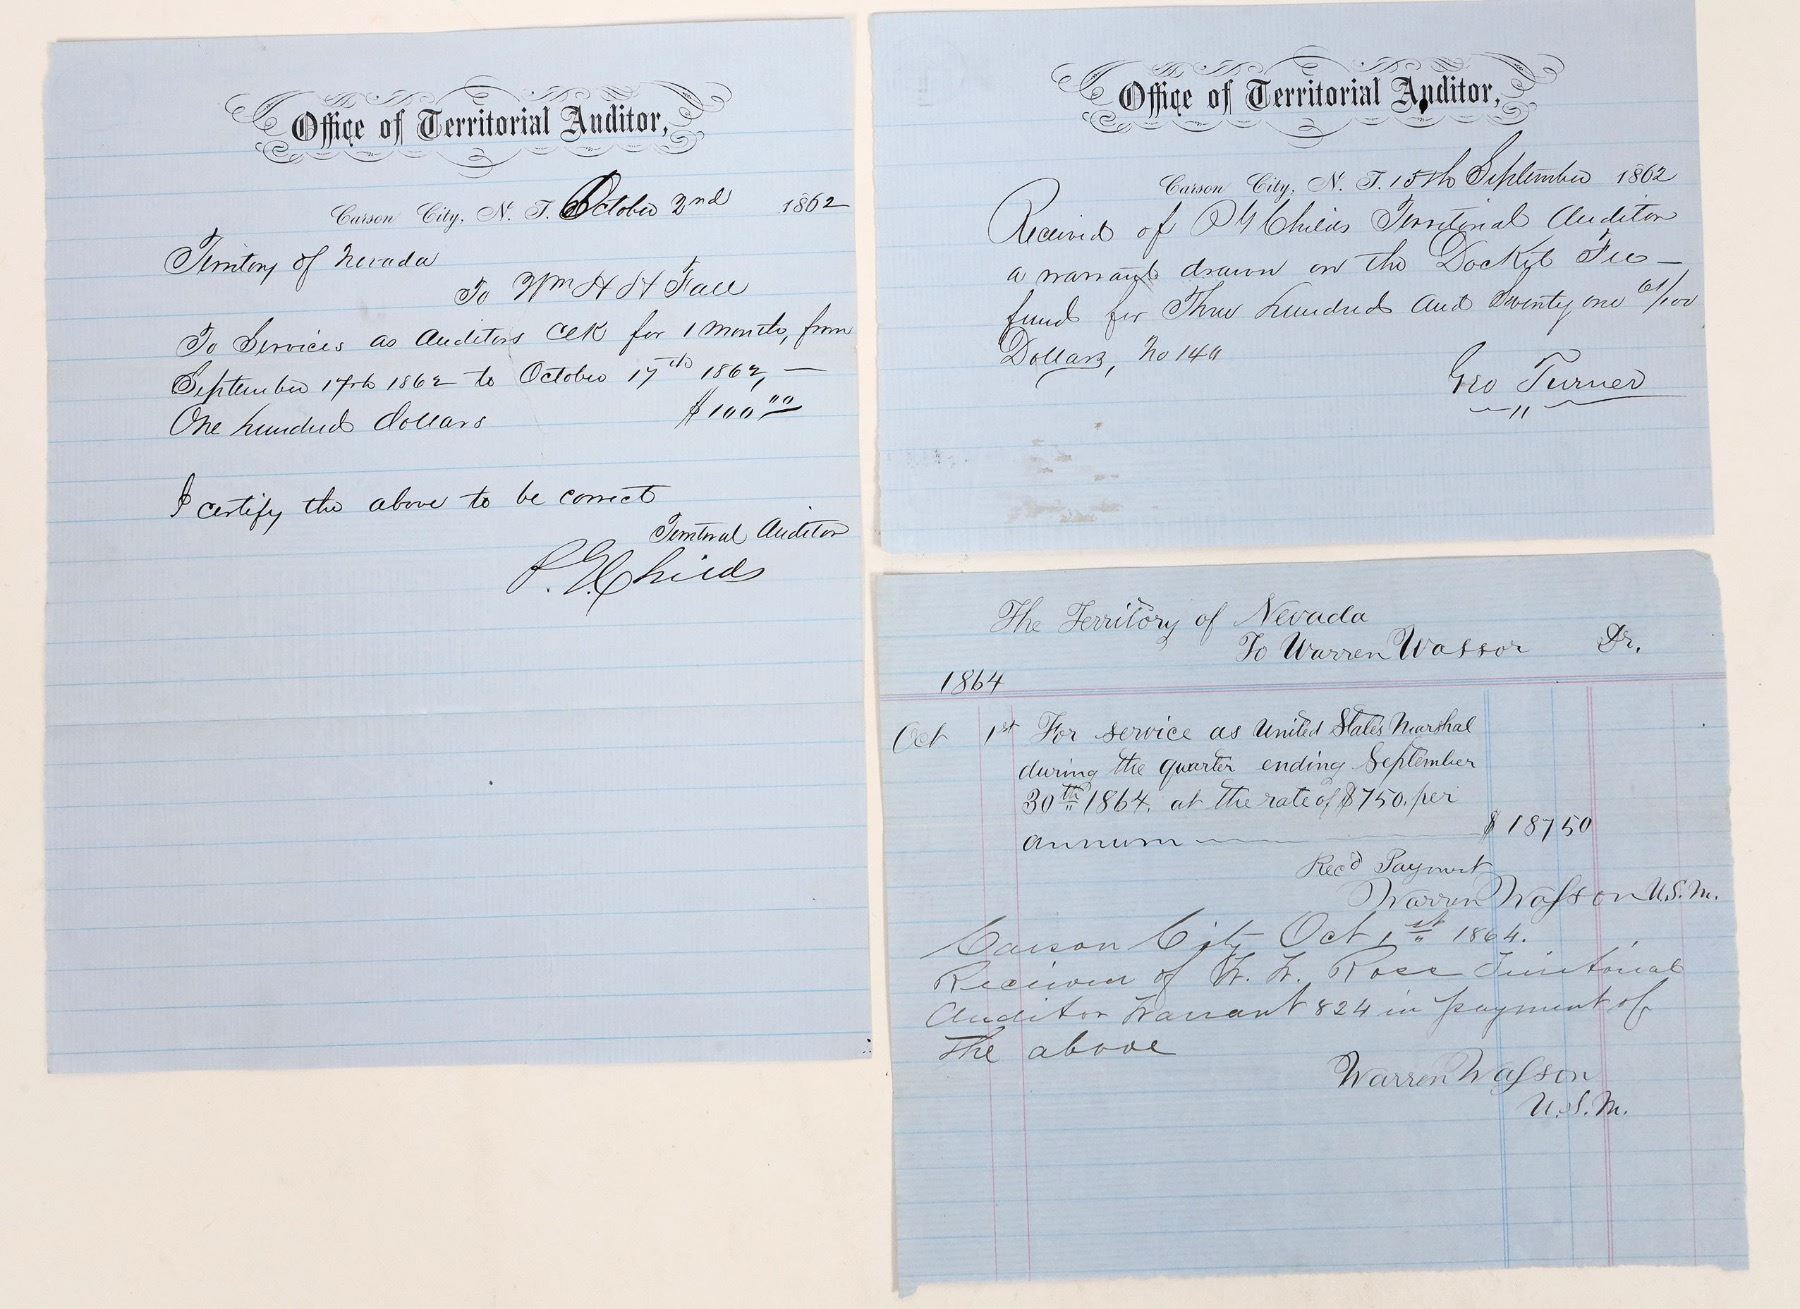 Office of Territorial Auditor,
Carson City, N. T. October 2nd 1862
Territory of Nevada
To Wm H H Fall
To Services as Auditors Clk for 1 Month, from
September 17th 1862 to October 17th 1862, —
One hundred dollars $100.00
I certify the above to be correct
Territorial Auditor
P. G. Childs
Office of Territorial Auditor,
Carson City, N. T. 15th September 1862
Received of P G Childs Territorial Auditor
a warrant drawn on the Docket Fees —
fund for Three hundred and Twenty one 61/100
Dollars, No 140
Geo Turner
The Territory of Nevada
To Warren Wasson Dr.
1864
Oct 1st For service as United States Marshal
during the quarter ending September
30th 1864, at the rate of $750. per
annum — $187 50
Rec'd Payment
Warren Wasson U.S.M.
Carson City Oct 1st 1864.
Received of W. W. Ross Territorial
Auditor Warrant 824 in payment of
the above
Warren Wasson
U.S.M.